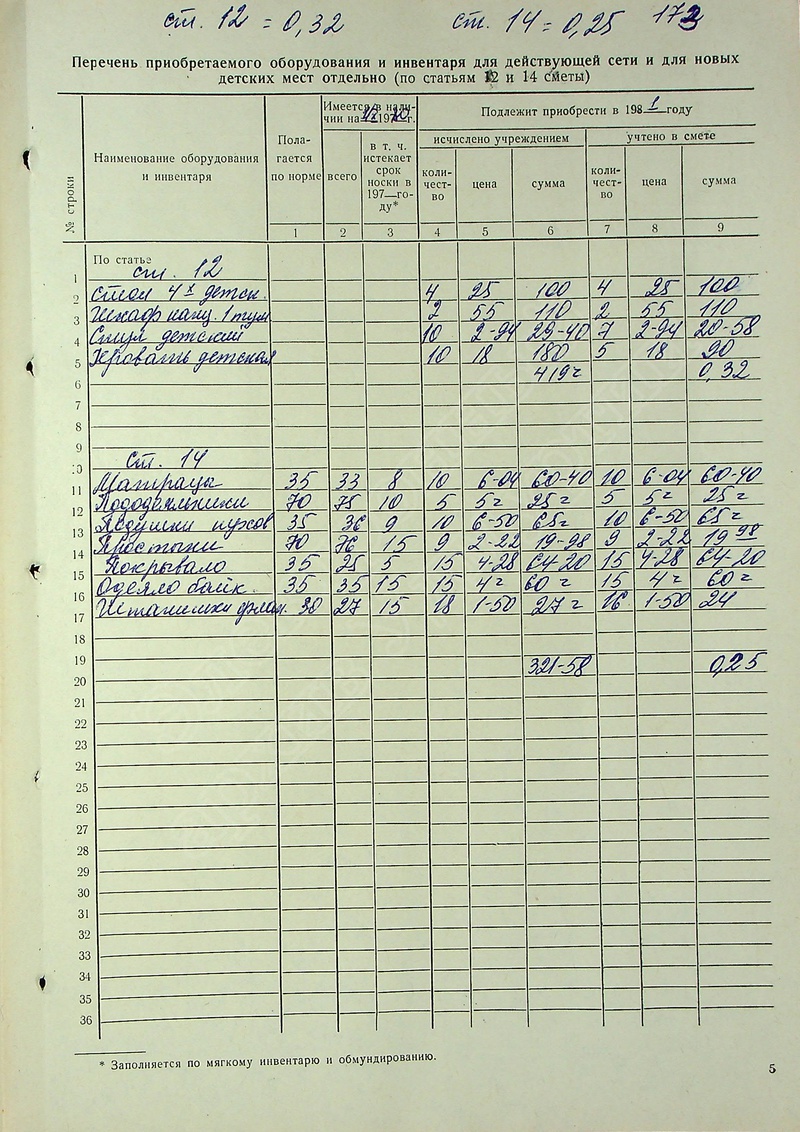 ст. 12 = 0,32 ст. 14 = 0,25 173
Перечень приобретаемого оборудования и инвентаря для действующей сети и для новых
детских мест отдельно (по статьям 12 и 14 сметы)
№ строки
Наименование оборудования и инвентаря
Полагается по норме
Имеется в наличии на 197 г.
всего
в т. ч. истекает срок носки в 197—году*
Подлежит приобрести в 1981 году
исчислено учреждением
учтено в смете
количество цена сумма количество цена сумма
1 2 3 4 5 6 7 8 9
По статье
1 ст. 12
2 Стол 4х детск. 4 25 100 4 25 100
3 Шкаф канц. 1 тум 2 55 110 2 55 110
4 Стул детский 10 2-94 29-40 7 2-94 20-58
5 Кровать детская 10 18 180 5 18 90
6 419 0,32
7
8
9
10 Ст. 14
11 Матрацы 35 33 8 10 6-04 60-40 10 6-04 60-40
12 Пододеяльники 70 75 10 5 5 25 5 5 25
13 Подушки пухов 35 36 9 10 6-50 65 10 6-50 65
14 Простыни 70 76 15 9 2-22 19-98 9 2-22 19 98
15 Покрывало 35 25 5 15 4-28 64-20 15 4-28 64-20
16 Одеяло байк. 35 35 15 15 4 60 15 4 60
17 Штанишки флан. 30 27 15 18 1-50 27 16 1-50 24
18
19 321-58 0,25
20
21
22
23
24
25
26
27
28
29
30
31
32
33
34
35
36
* Заполняется по мягкому инвентарю и обмундированию.
5